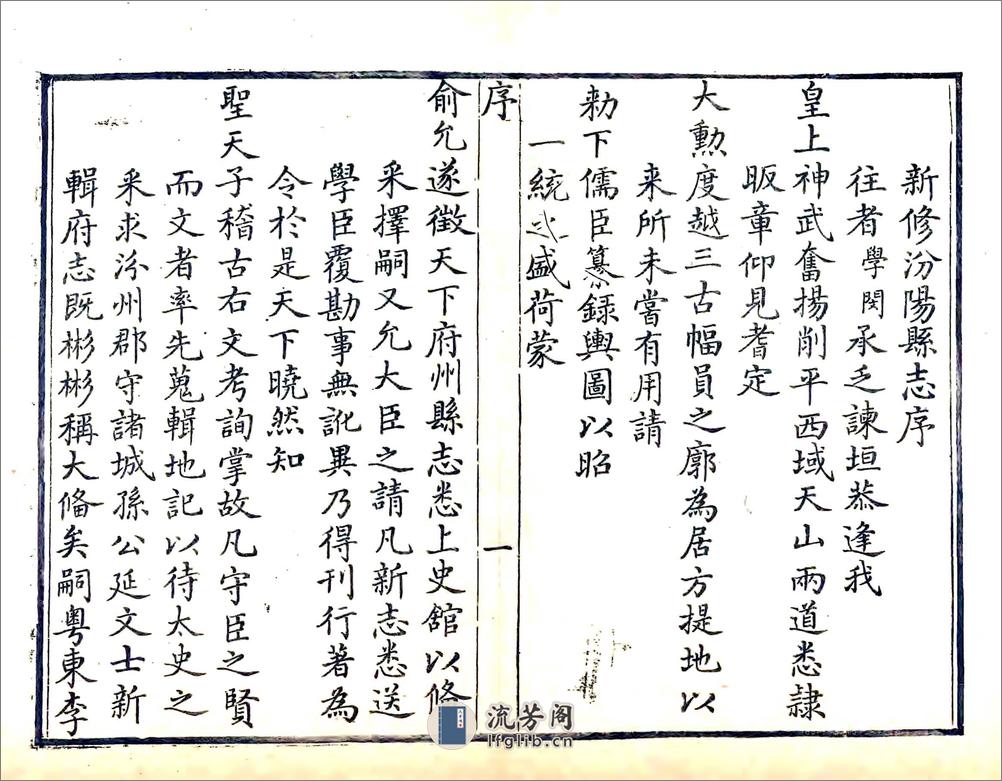 新修汾陽縣志序
往者學閔承乏諫垣恭逢我
皇上神武奮揚削平西域天山兩道悉隷
昄章仰見耆定
大勲度越三古幅員之廓為居方提地以
来所未嘗有用請
勅下儒臣纂録輿圖以昭
一統之盛荷蒙
序
一
俞允遂徵天下府州縣志悉上史舘以俻
采擇嗣又允大臣之請凡新志悉送
學臣覆勘事無訛異乃得刊行著為
令於是天下曉然知
聖天子稽古右文考詢掌故凡守臣之賢
而文者率先蒐輯地記以待太史之
采求汾州郡守諸城孫公延文士新
輯府志既彬彬稱大俻矣嗣粤東李
流芳阁
lfglib.cn